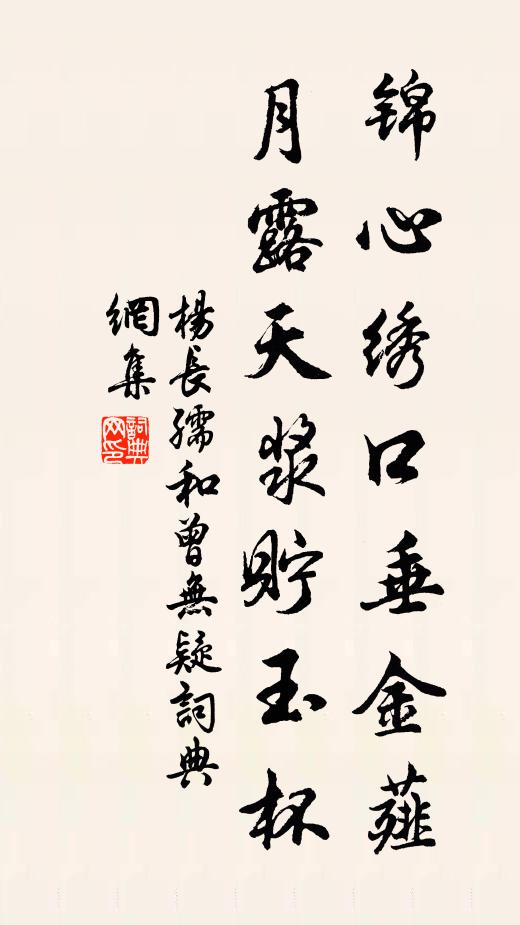 锦心绣口垂金薤
月露天漿貯玉杯
楊長孺和曾無疑詞典
網集
詞典網印